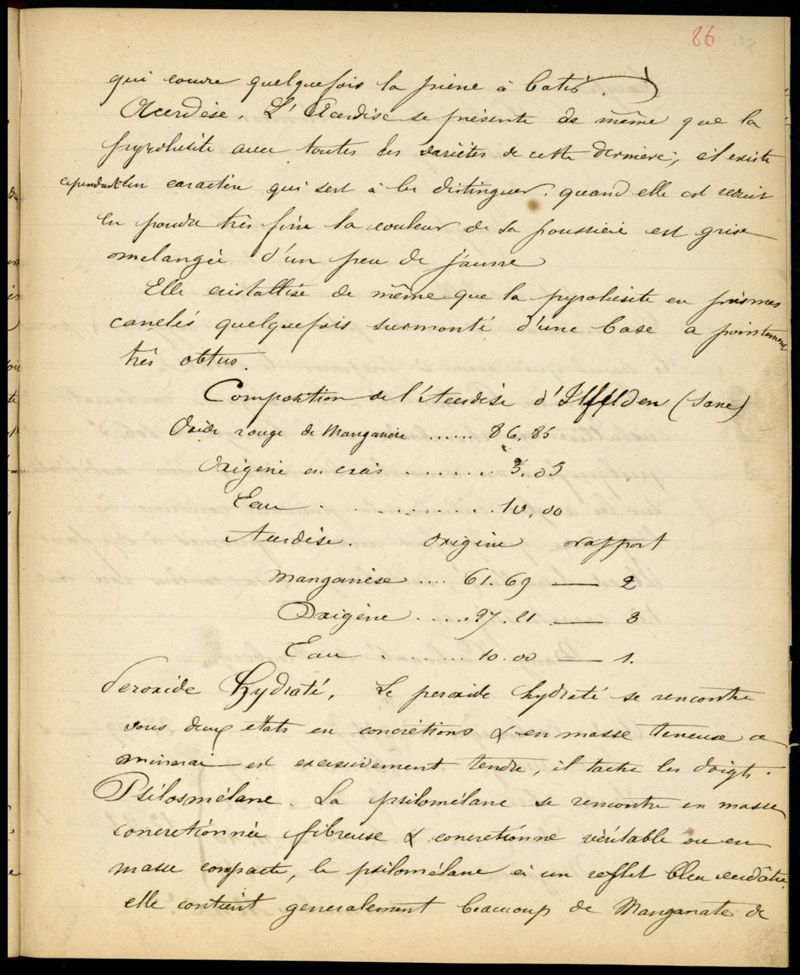 86
qui couvre quelquefois la pierre à batir.
Acerdèse. L'Acerdèse se présente de même que la
pyrolusite avec toutes les variétés de cette dernière, il existe
cependant un caractère qui sert à les distinguer. quand elle est reduit
en poudre très fine la couleur de sa poussière est grise
melangée d'un peu de jaune
Elle cristallise de même que la pyrolusite en prismes
canelés quelquefois surmonté d'une base a pointement
très obtus.
Composition de l'Acerdèse d'Ilffelden
Oxide rouge de Manganèse ...... 86,85
Oxigène en excès ........ 3.05
Eau ........... 10,00
Acerdèse. Oxigène rapport
manganèse .... 61.69 — 2
Oxigène ..... 27.21 — 3
Eau ........ 10.00 — 1.
Peroxide Hydraté. Le peroxide hydraté se rencontre
sous deux états en concrétions & en masse terreuse ce
minerai est excessivement tendre, il tache les doigts.
Psilosmélane. La psilomélane se rencontre en masse
concretionnée fibreuse & concretionné véritable ou en
masse compacte, le psilomélane à un reflet bleu
elle contient generalement beaucoup de Manganate de